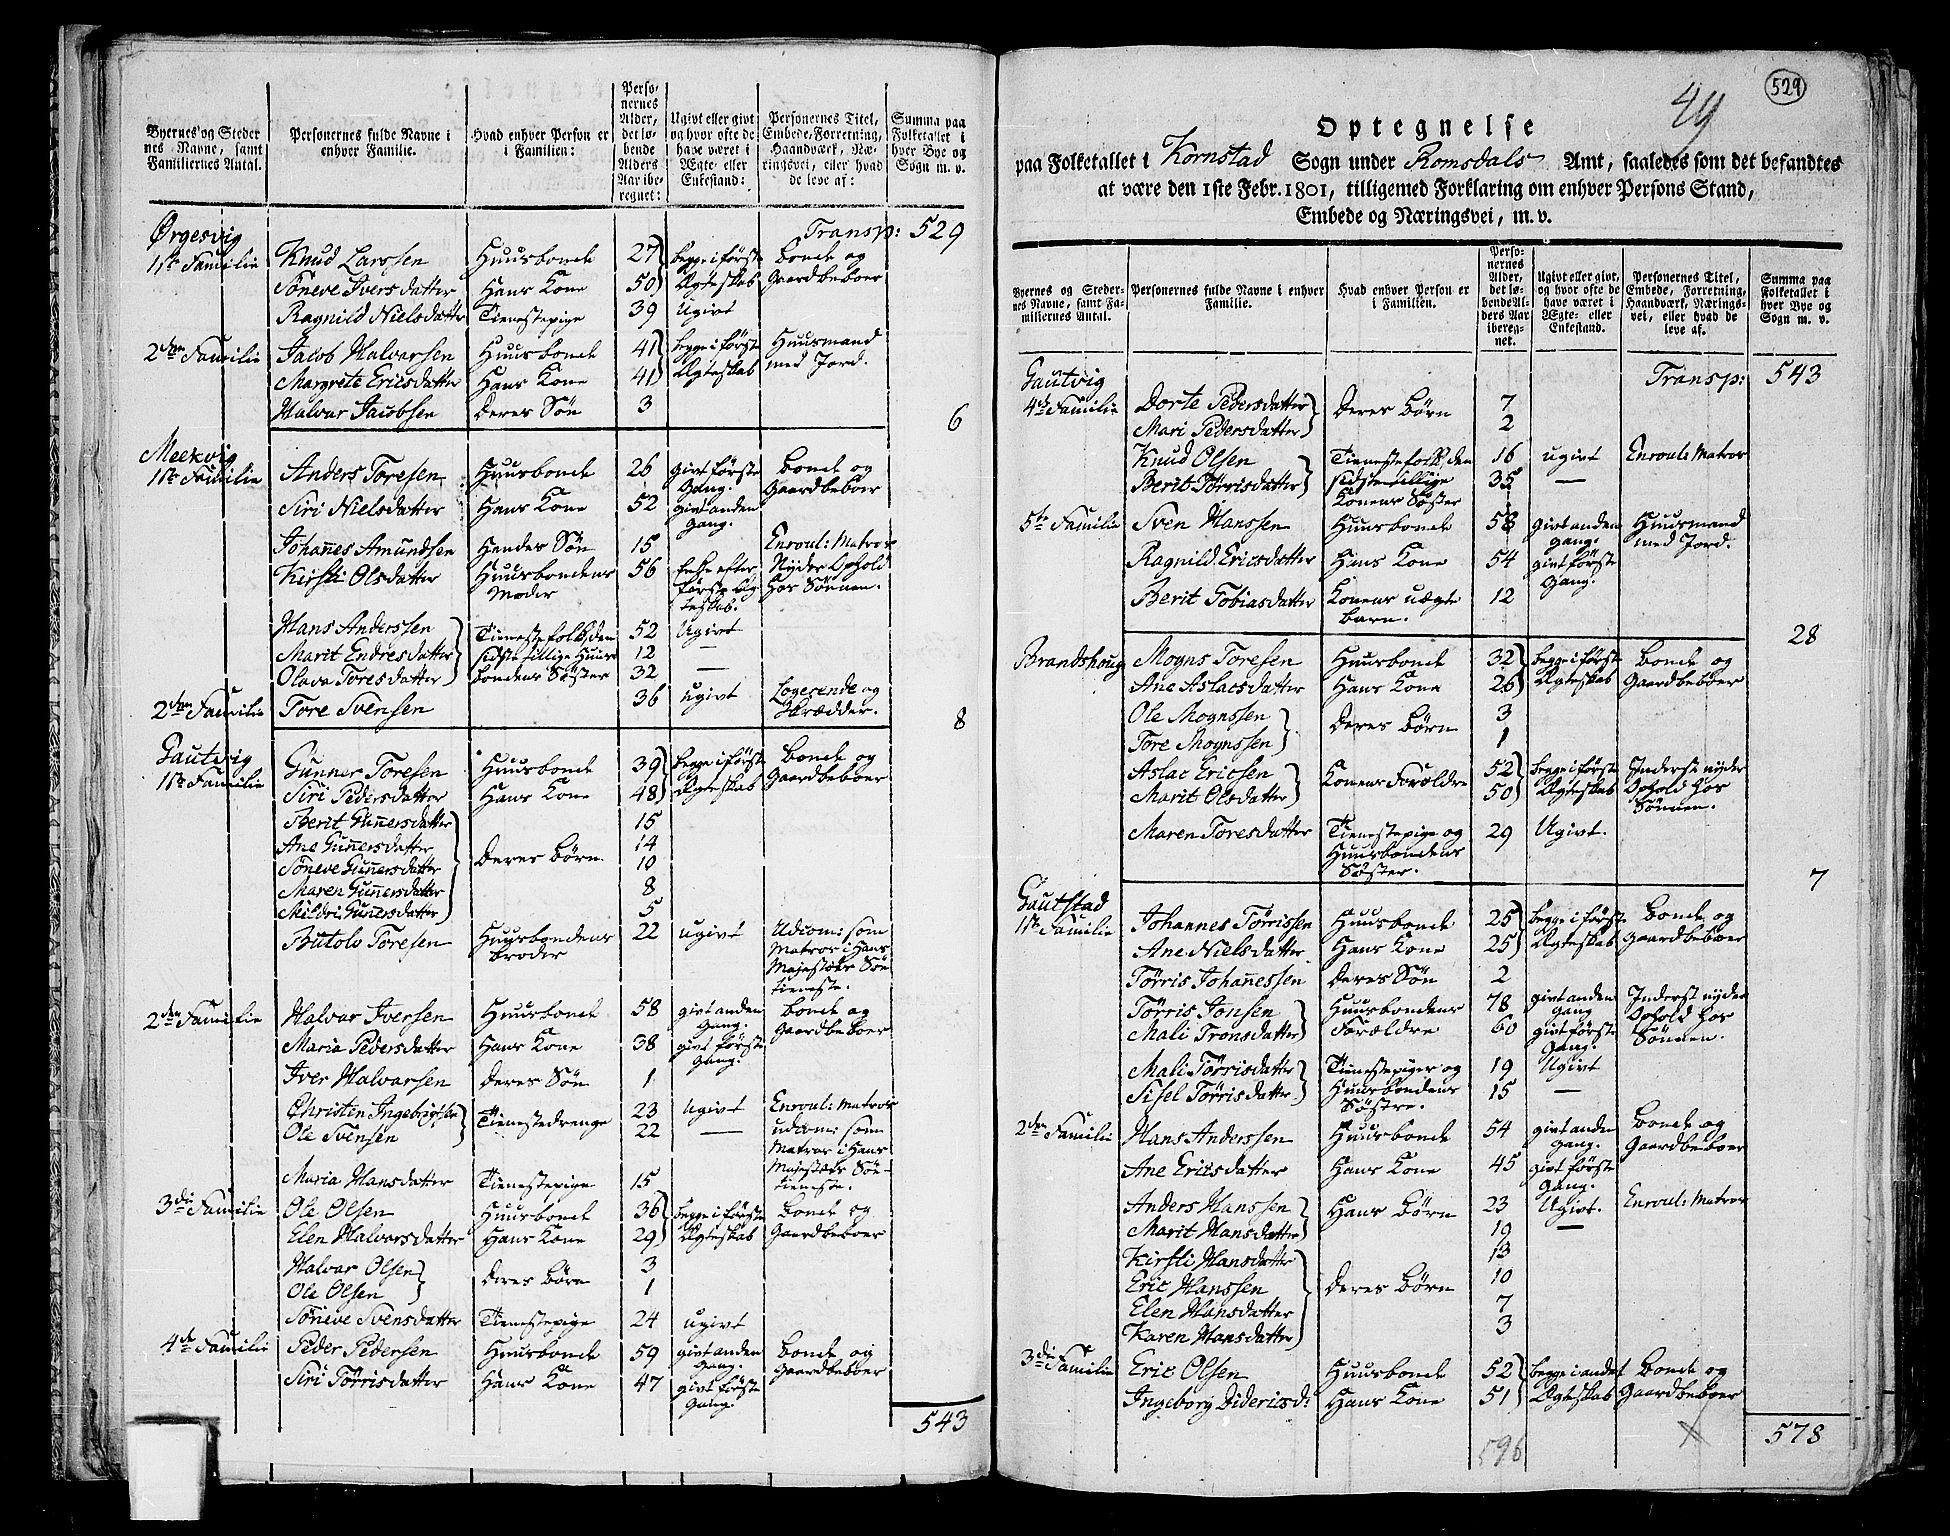 Byernes og Steder
nes Navne, samt
Familiernes Antal.
Personernes fulde Navne i
enhver Familie.
Hvad enhver Person er
i Familien:
Perso-
nernes
Alder,
det lø-
bende
Alders
Aar ibe-
regnet:
Ugivt eller givt
og hvor ofte de
have været i
Ægte- eller
Enkestand:
Personernes Titel,
Embede, Forretning,
Haandværk, Næ-
ringsvei, eller hvad
de leve af:
Summa paa
Folketallet i
hver Bye og
Sogn m. v.
Ørgesvig Transp: 529
1ste Familie Knud Larssen Huusbonde 27 begge i første Bonde og
Söneve Iversdatter Hans Kone 50 Ægteskab Gaardbeboer
Ragnild Nielsdatter Tienestepige 39 Ugivt
2den Familie Jacob Halvarsen Huusbonde 41 begge i første Huusmand
Margrete Ericsdatter Hans Kone 41 Ægteskab med Jord.
Halvar Jacobsen Deres Sön 3
6
Meekvig
1ste Familie Anders Toresen Huusbonde 26 givt første Bonde og
Gang. Gaardbeboer
Siri Nielsdatter Hans Kone 52 givt anden
Gang.
Johannes Amundsen Hendes Sön 15 Enroul: Matros
Kirsti Olsdatter Huusbondens 56 Enke efter Nyder Ophold
Moder første Æg- hos Sönnen.
teskab.
Hans Anderssen Tienestefolk, den 52 Ugivt
Marit Endresdatter sidste tillige Huus- 12 —
Olava Toresdatter bondens Søster 32 —
2den Familie Tore Svensen 36 ugivt Logerende og
Skrædder.
8
Gautvig
1ste Familie Gunner Toresen Huusbonde 39 begge i første Bonde og
Siri Pedersdatter Hans Kone 48 Ægteskab Gaardbeboer
Berit Gunnersdatter 15
Ane Gunnersdatter 14
Söneve Gunnersdatter Deres Børn 10
Maren Gunnersdatter 8
Mildri Gunnersdatter 5
Butolv Toresen Huusbondens 22 ugivt Udcom: som
Broder Matros i Hans
Majestæts Søe
tieneste.
2den Familie Halvar Iversen Huusbonde 58 givt anden Bonde og
Gang. Gaardbeboer
Maria Pedersdatter Hans Kone 38 givt første
Gang.
Iver Halvarsen Deres Sön 1
Christen Ingebrigtsen Tienestedrenge 23 Ugivt Enroul: Matros
Ole Svensen 22 — udcom: som
Matros i Hans
Majestæts Søe-
tieneste.
Maria Hansdatter Tienestepige 15
3die Familie Ole Olsen Huusbonde 36 begge i første Bonde og
Elen Halvarsdatter Hans Kone 29 Ægteskab Gaardbeboer
Halvar Olsen Deres Børn 3
Ole Olsen 1
Söneve Svensdatter Tienestepige 24 ugivt
4de Familie Peder Pedersen Huusbonde 59 givt anden Bonde og
Gang. Gaardbeboer
Siri Törrisdatter Hans Kone 47 givt første
Gang.
543
529
49
Optegnelse
paa Folketallet i Kornstad Sogn under Romsdals Amt, saaledes som det befandtes
at være den 1ste Febr. 1801, tilligemed Forklaring om enhver Persons Stand,
Embede og Næringsvei, m. v.
Byernes og Steder-
nes Navne, samt Fa-
miliernes Antal.
Personernes fulde Navne i enhver
Familie.
Hvad enhver Person er
i Familien.
Perso-
nernes
Alder,
det lø-
bende Al-
ders Aar
iberen-
net.
Ugivt eller givt,
og hvor ofte de
have været i
Ægte- eller
Enkestand.
Personernes Titel,
Embede, Forretning,
Haandværk, Nærings-
vei, eller hvad de
leve af.
Summa paa
Folketallet i
hver Bye og
Sogn m. v.
Gautvig Transp: 543
4de Familie Dorte Pedersdatter Deres Børn 7
Mari Pedersdatter 2
Knud Olsen Tienestefolk, den 16 ugivt Enroul: Matros
Berit Törrisdatter sidste tillige 35 —
Konens Søster
5te Familie Sven Hanssen Huusbonde 58 givt anden Huusmand
Gang. med Jord.
Ragnild Ericsdatter Hans Kone 54 givt første
Gang.
Berit Tobiasdatter Konens uægte 12
Barn.
28
Brandshoug Mogns Toresen Huusbonde 32 begge i første Bonde og
Ane Aslacsdatter Hans Kone 26 Ægteskab Gaardbeboer
Ole Mognssen Deres Børn 3
Tore Mognssen 1
Aslac Ericsen Konens Forældre 52 begge i første Inderst nyder
Marit Olsdatter 50 Ægteskab Ophold hos
Sönnen.
Maren Toresdatter Tienestepige og 29 Ugivt.
Huusbondens
Søster.
7
Gautstad
1ste Familie Johannes Törrissen Huusbonde 25 begge i første Bonde og
Ane Nielsdatter Hans Kone 25 Ægteskab Gaardbeboer
Törris Johannessen Deres Sön 2
Törris Jonsen Huusbondens 78 givt anden Inderst nyder
Gang Ophold hos
Mali Tronsdatter Forældre 60 givt første Sönnen.
Gang.
Mali Törrisdatter Tienestepiger og 19 Ugivt
Sisel Törrisdatter Huusbondens 15 —
Søstre.
2den Familie Hans Anderssen Huusbonde 54 givt anden Bonde og
Gang. Gaardbeboer
Ane Ericsdatter Hans Kone 45 givt første
Gang.
Anders Hanssen Hans Børn 23 Ugivt. Enroul: Matros
Marit Hansdatter 19 —
Kirsti Hansdatter 13
Eric Hanssen Deres Børn 10
Elen Hansdatter 7
Karen Hansdatter 3
3die Familie Eric Olsen Huusbonde 52 begge i andet Bonde og
Ingeborg Didericsd: Hans Kone 51 Ægteskab Gaardbeboer
578
596